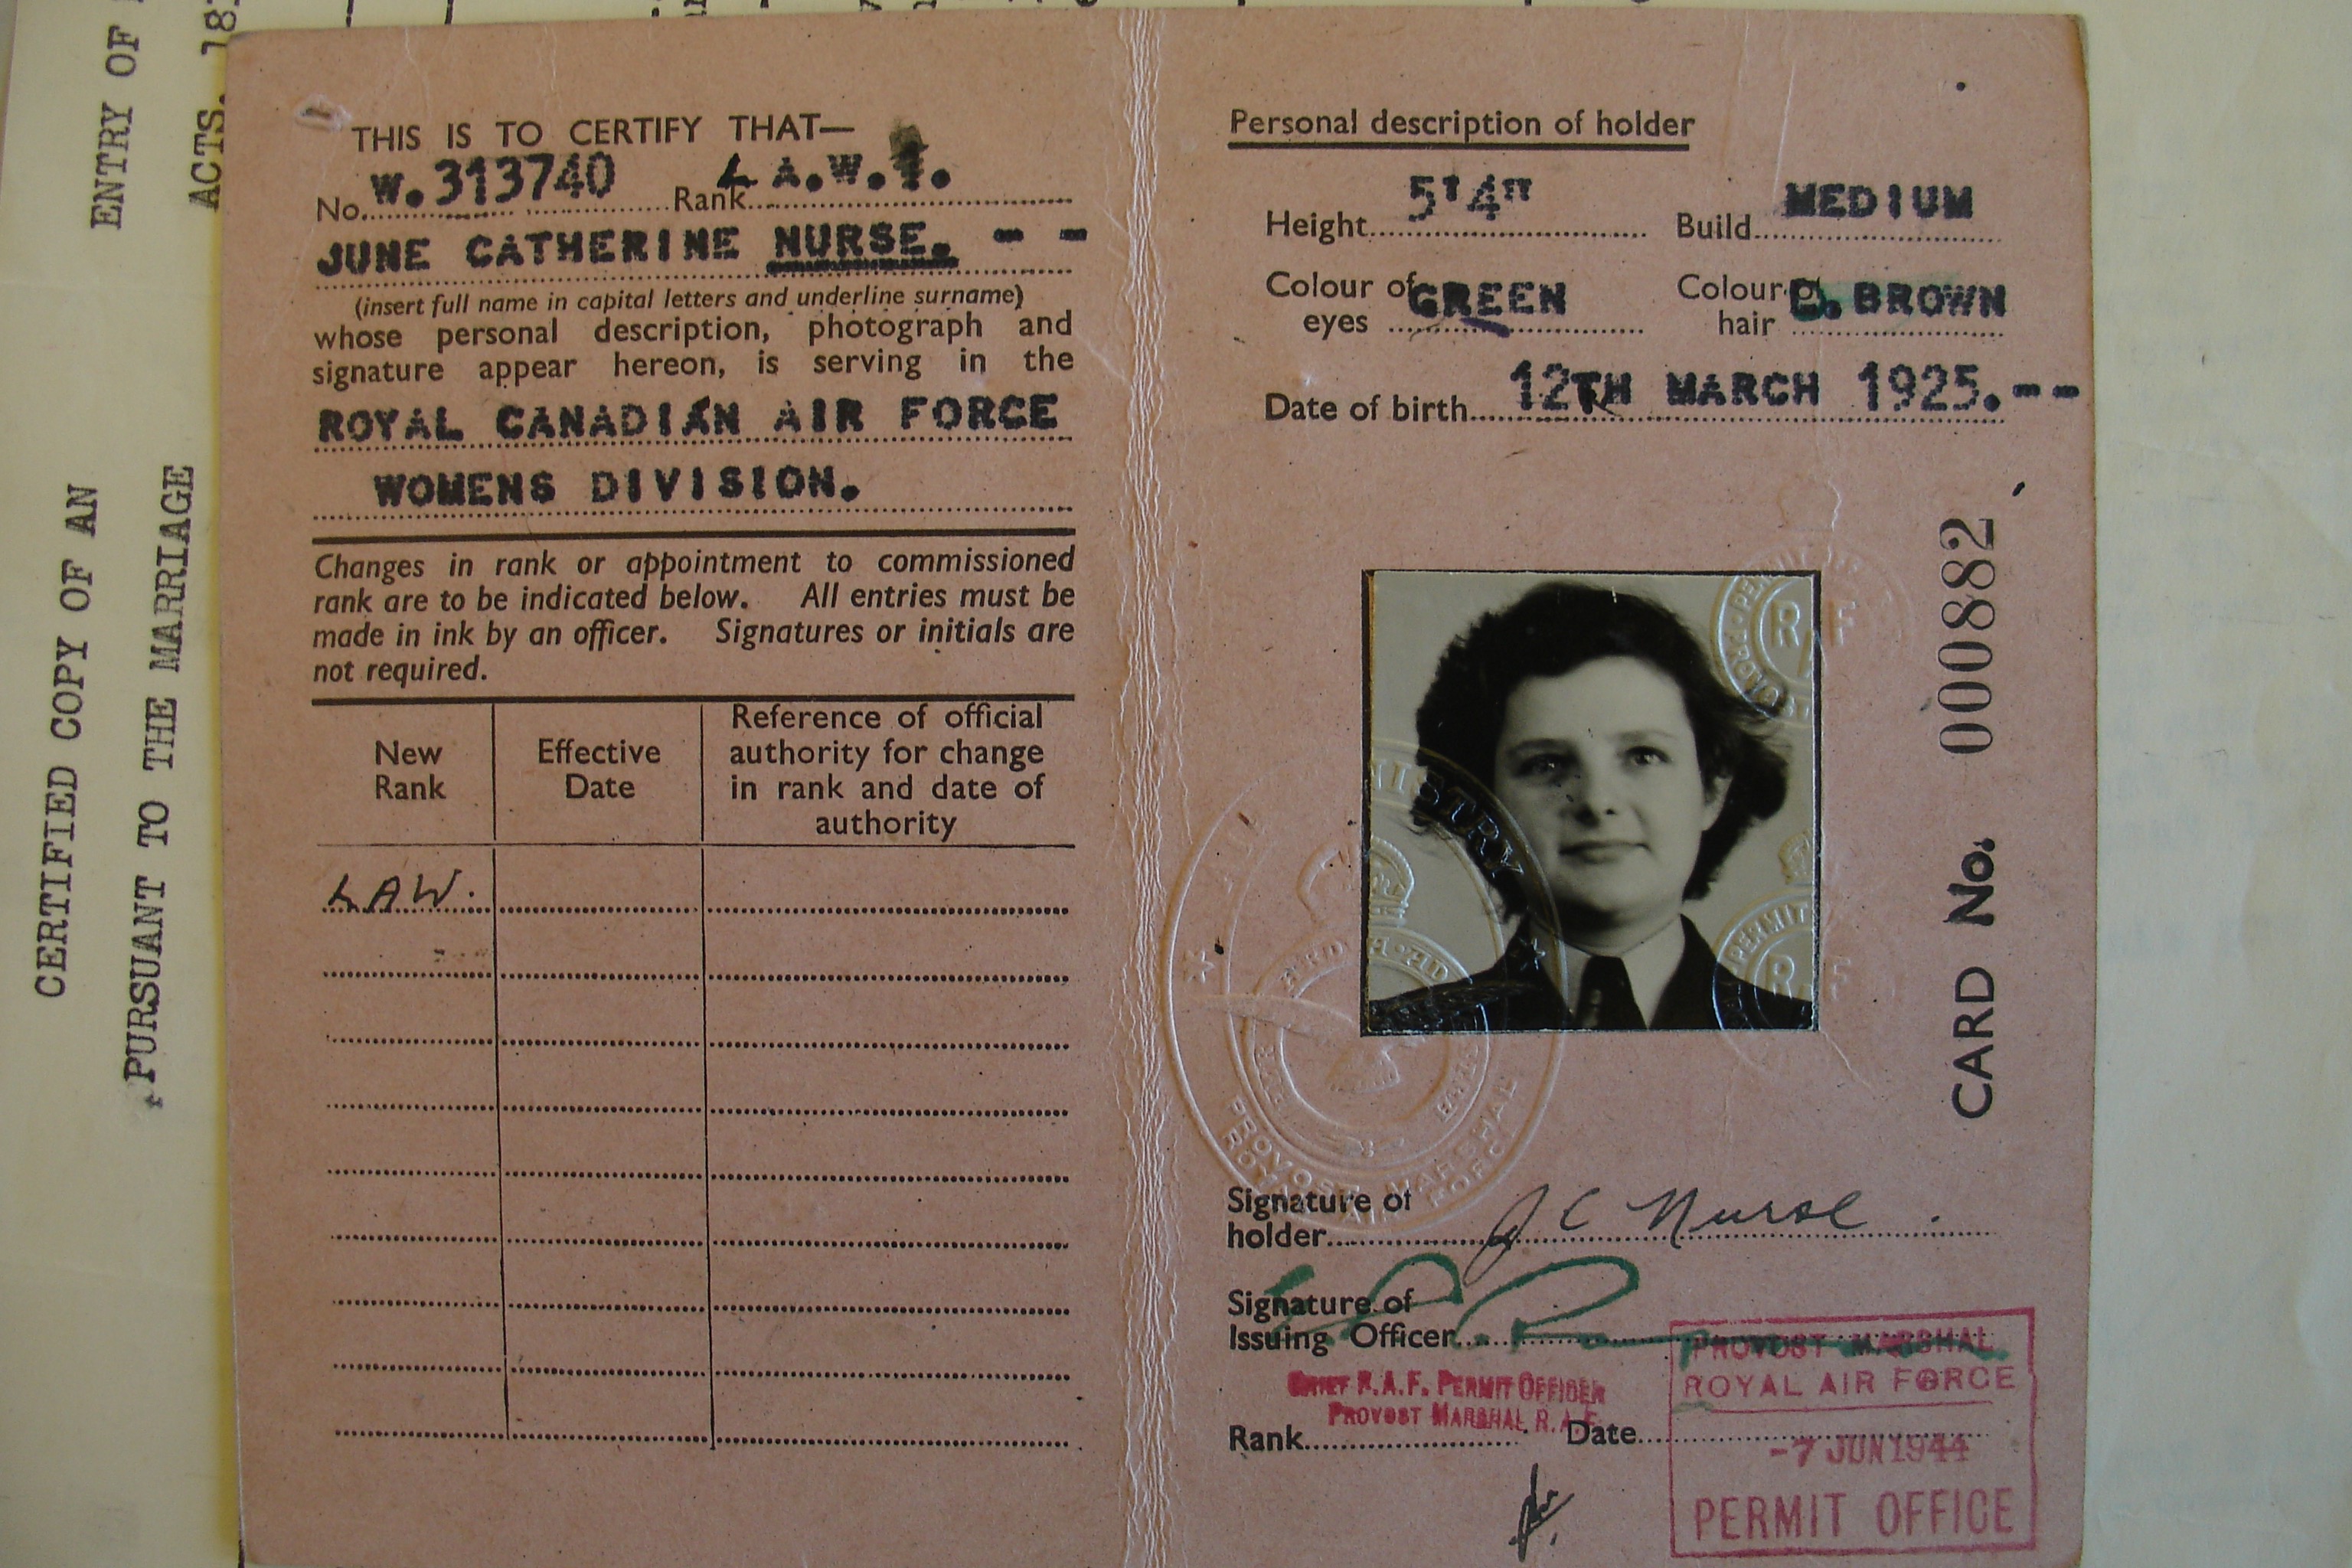 ENTRY OF
ACTS. 187
CERTIFIED COPY OF AN
PURSUANT TO THE MARRIAGE
THIS IS TO CERTIFY THAT—
No. W.313740 Rank L A.W.1.
JUNE CATHERINE NURSE. - -
(insert full name in capital letters and underline surname)
whose personal description, photograph and
signature appear hereon, is serving in the
ROYAL CANADIAN AIR FORCE
WOMENS DIVISION.
Changes in rank or appointment to commissioned
rank are to be indicated below. All entries must be
made in ink by an officer. Signatures or initials are
not required.
New Rank
Effective Date
Reference of official authority for change in rank and date of authority
LAW.
Personal description of holder
Height 5'4" Build MEDIUM
Colour of eyes GREEN Colour of hair D. BROWN
Date of birth 12TH MARCH 1925.--
CARD No. 000882
AIR MINISTRY
PROVOST MARSHAL
ROYAL AIR FORCE
PERMIT
R F
PERMIT
R F
Signature of
holder J C Nurse
Signature of
Issuing Officer
CHIEF R.A.F. PERMIT OFFICER
PROVOST MARSHAL R.A.F.
Rank Date
PROVOST MARSHAL
ROYAL AIR FORCE
-7 JUN 1944
PERMIT OFFICE